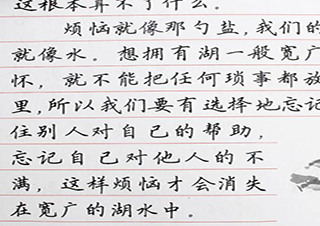 这根本算不了什么。
烦恼就像那勺盐,我们的
就像水。想拥有湖一般宽广
怀,就不能把任何琐事都放
里,所以我们要有选择地忘记
住别人对自己的帮助,
忘记自己对他人的不
满,这样烦恼才会消失
在宽广的湖水中。